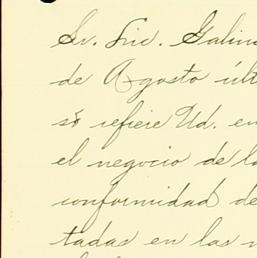 Sr. Lic. Galin
de Agosto últ
se refiere Ud. en
el negocio de la
conformidad de
tadas en las